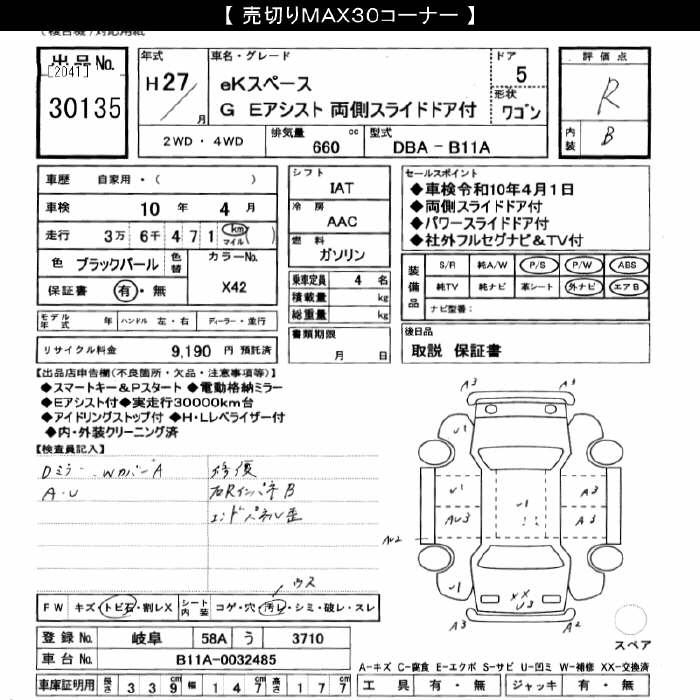 【 売切りMAX30コーナー 】
(複合機)対応用紙
出品No. [2041] 30135
年式 H27/ 月
車名・グレード
eKスペース
G Eアシスト 両側スライドドア付
ドア 5
形状 ワゴン
評価点 R
内装 B
2WD・4WD
排気量 660 cc
型式 DBA - B11A
車歴 自家用・( )
車検 10 年 4 月
走行 3万 6千 4 7 1 km マイル ( )
色 ブラックパール 色替 カラーNo. X42
保証書 有・無
モデル年式 年 ハンドル 左・右 ディーラー・並行
リサイクル料金 9,190 円 預託済
シフト IAT
冷房 AAC
燃料 ガソリン
乗車定員 4 名
積載量 kg
総重量 kg
書類期限 月 日
セールスポイント
◆車検令和10年4月1日
◆両側スライドドア付
◆パワースライドドア付
◆社外フルセグナビ&TV付
装備品 S/R 純A/W P/S P/W ABS
純TV 純ナビ 革シート 外ナビ エアB
ナビ型番:
後日品
取説 保証書
【出品店申告欄(不良箇所・欠品・注意事項等)】
◆スマートキー&Pスタート ◆電動格納ミラー
◆Eアシスト付◆実走行30000km台
◆アイドリングストップ付 ◆H・Lレベライザー付
◆内・外装クリーニング済
【検査員記入】
Dミラー、WカバーA
A・U
修復
右RインパネB
エンドパネル歪
A3 A3
U1
U1 A3
AU3 U1 A3
AU2
U1 XX U3
A3 A2
スペア
ウス
FW キズ・トビ石・割レX シート内装 コゲ・穴・汚レ・シミ・破レ・スレ
登録No. 岐阜 58A う 3710
車台No. B11A-0032485
A-キズ C-腐食 E-エクボ S-サビ U-凹ミ W-補修 XX-交換済
車庫証明用 長さ 3 3 9 cm 幅 1 4 7 cm 高さ 1 7 7 cm
工具 有・無 ジャッキ 有・無